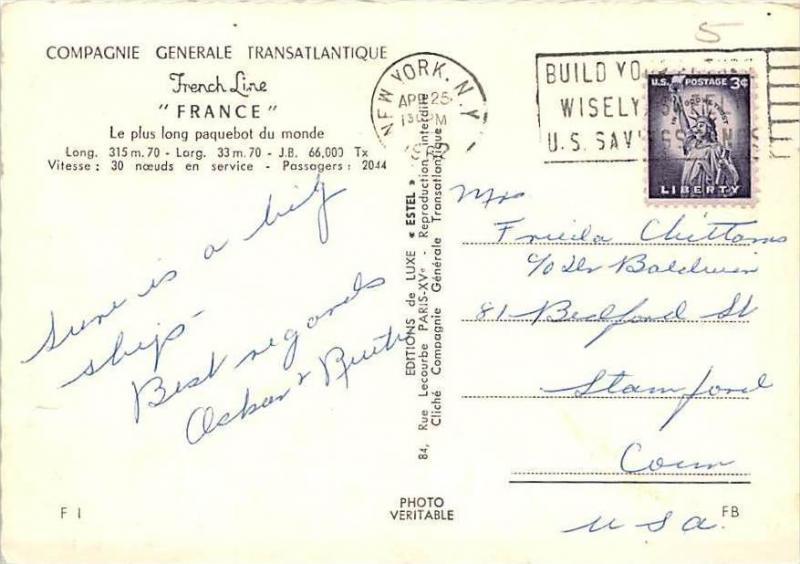 COMPAGNIE GENERALE TRANSATLANTIQUE
French Line
"FRANCE"
Le plus long paquebot du monde
Long. 315 m. 70 - Larg. 33 m. 70 - J.B. 66,000 Tx
Vitesse : 30 nœuds en service - Passagers : 2044
Sure is a big
ship -
Best regards
Oskar & Ruth
F 1
EDITIONS de LUXE « ESTEL »
84, Rue Lecourbe PARIS-XVe - Reproduction interdite
Cliché Compagnie Générale Transatlantique
PHOTO
VERITABLE
NEW YORK, N.Y.
APR 25
PM
5
BUILD YO
WISELY
U.S. SAV
U.S. POSTAGE 3¢
IN GOD WE TRUST
LIBERTY
Mrs
Frieda Chittams
c/o Dr Baldwin
81 Bedford St
Stamford
Conn
USA.
FB